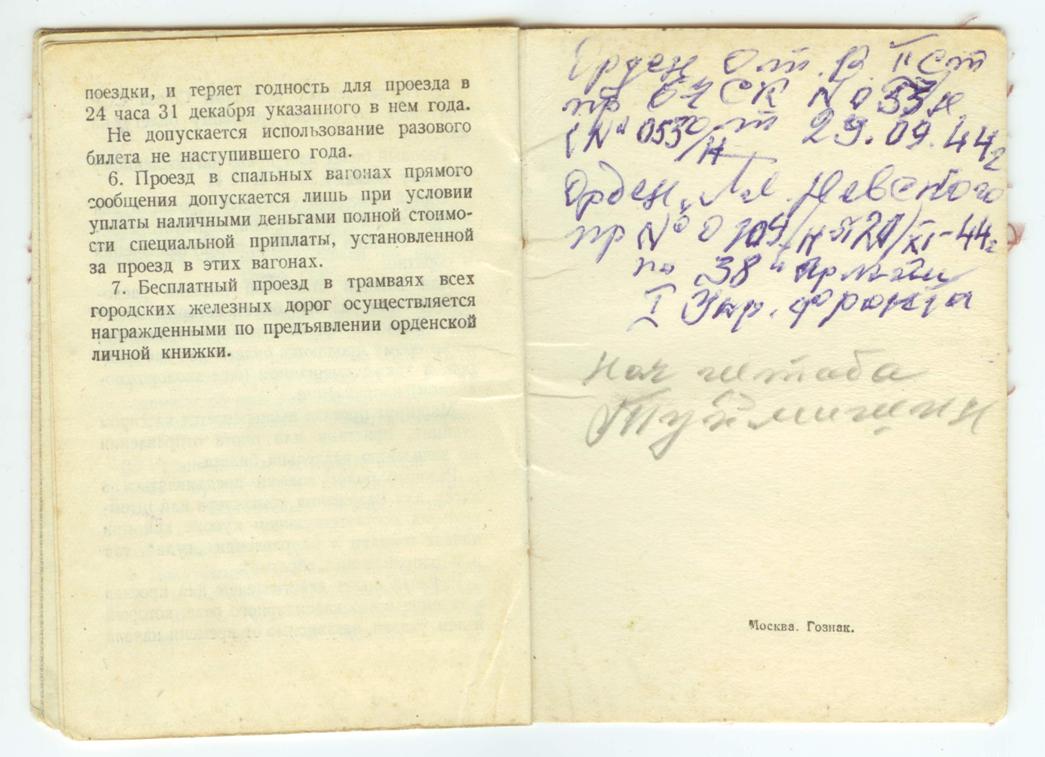 поездки, и теряет годность для проезда в
24 часа 31 декабря указанного в нем года.
Не допускается использование разового
билета не наступившего года.
6. Проезд в спальных вагонах прямого
сообщения допускается лишь при условии
уплаты наличными деньгами полной стоимо-
сти специальной приплаты, установленной
за проезд в этих вагонах.
7. Бесплатный проезд в трамваях всех
городских железных дорог осуществляется
награжденными по предъявлении орденской
личной книжки.
Орден От. В. II ст
пр. 04 СК №
(№ 053/Н от 29.09.44г
Орден Ал. Невского
пр № 0109/н 20/XI-44г
по 38й Армии
I Укр. фронта
Нач штаба
Москва. Гознак.